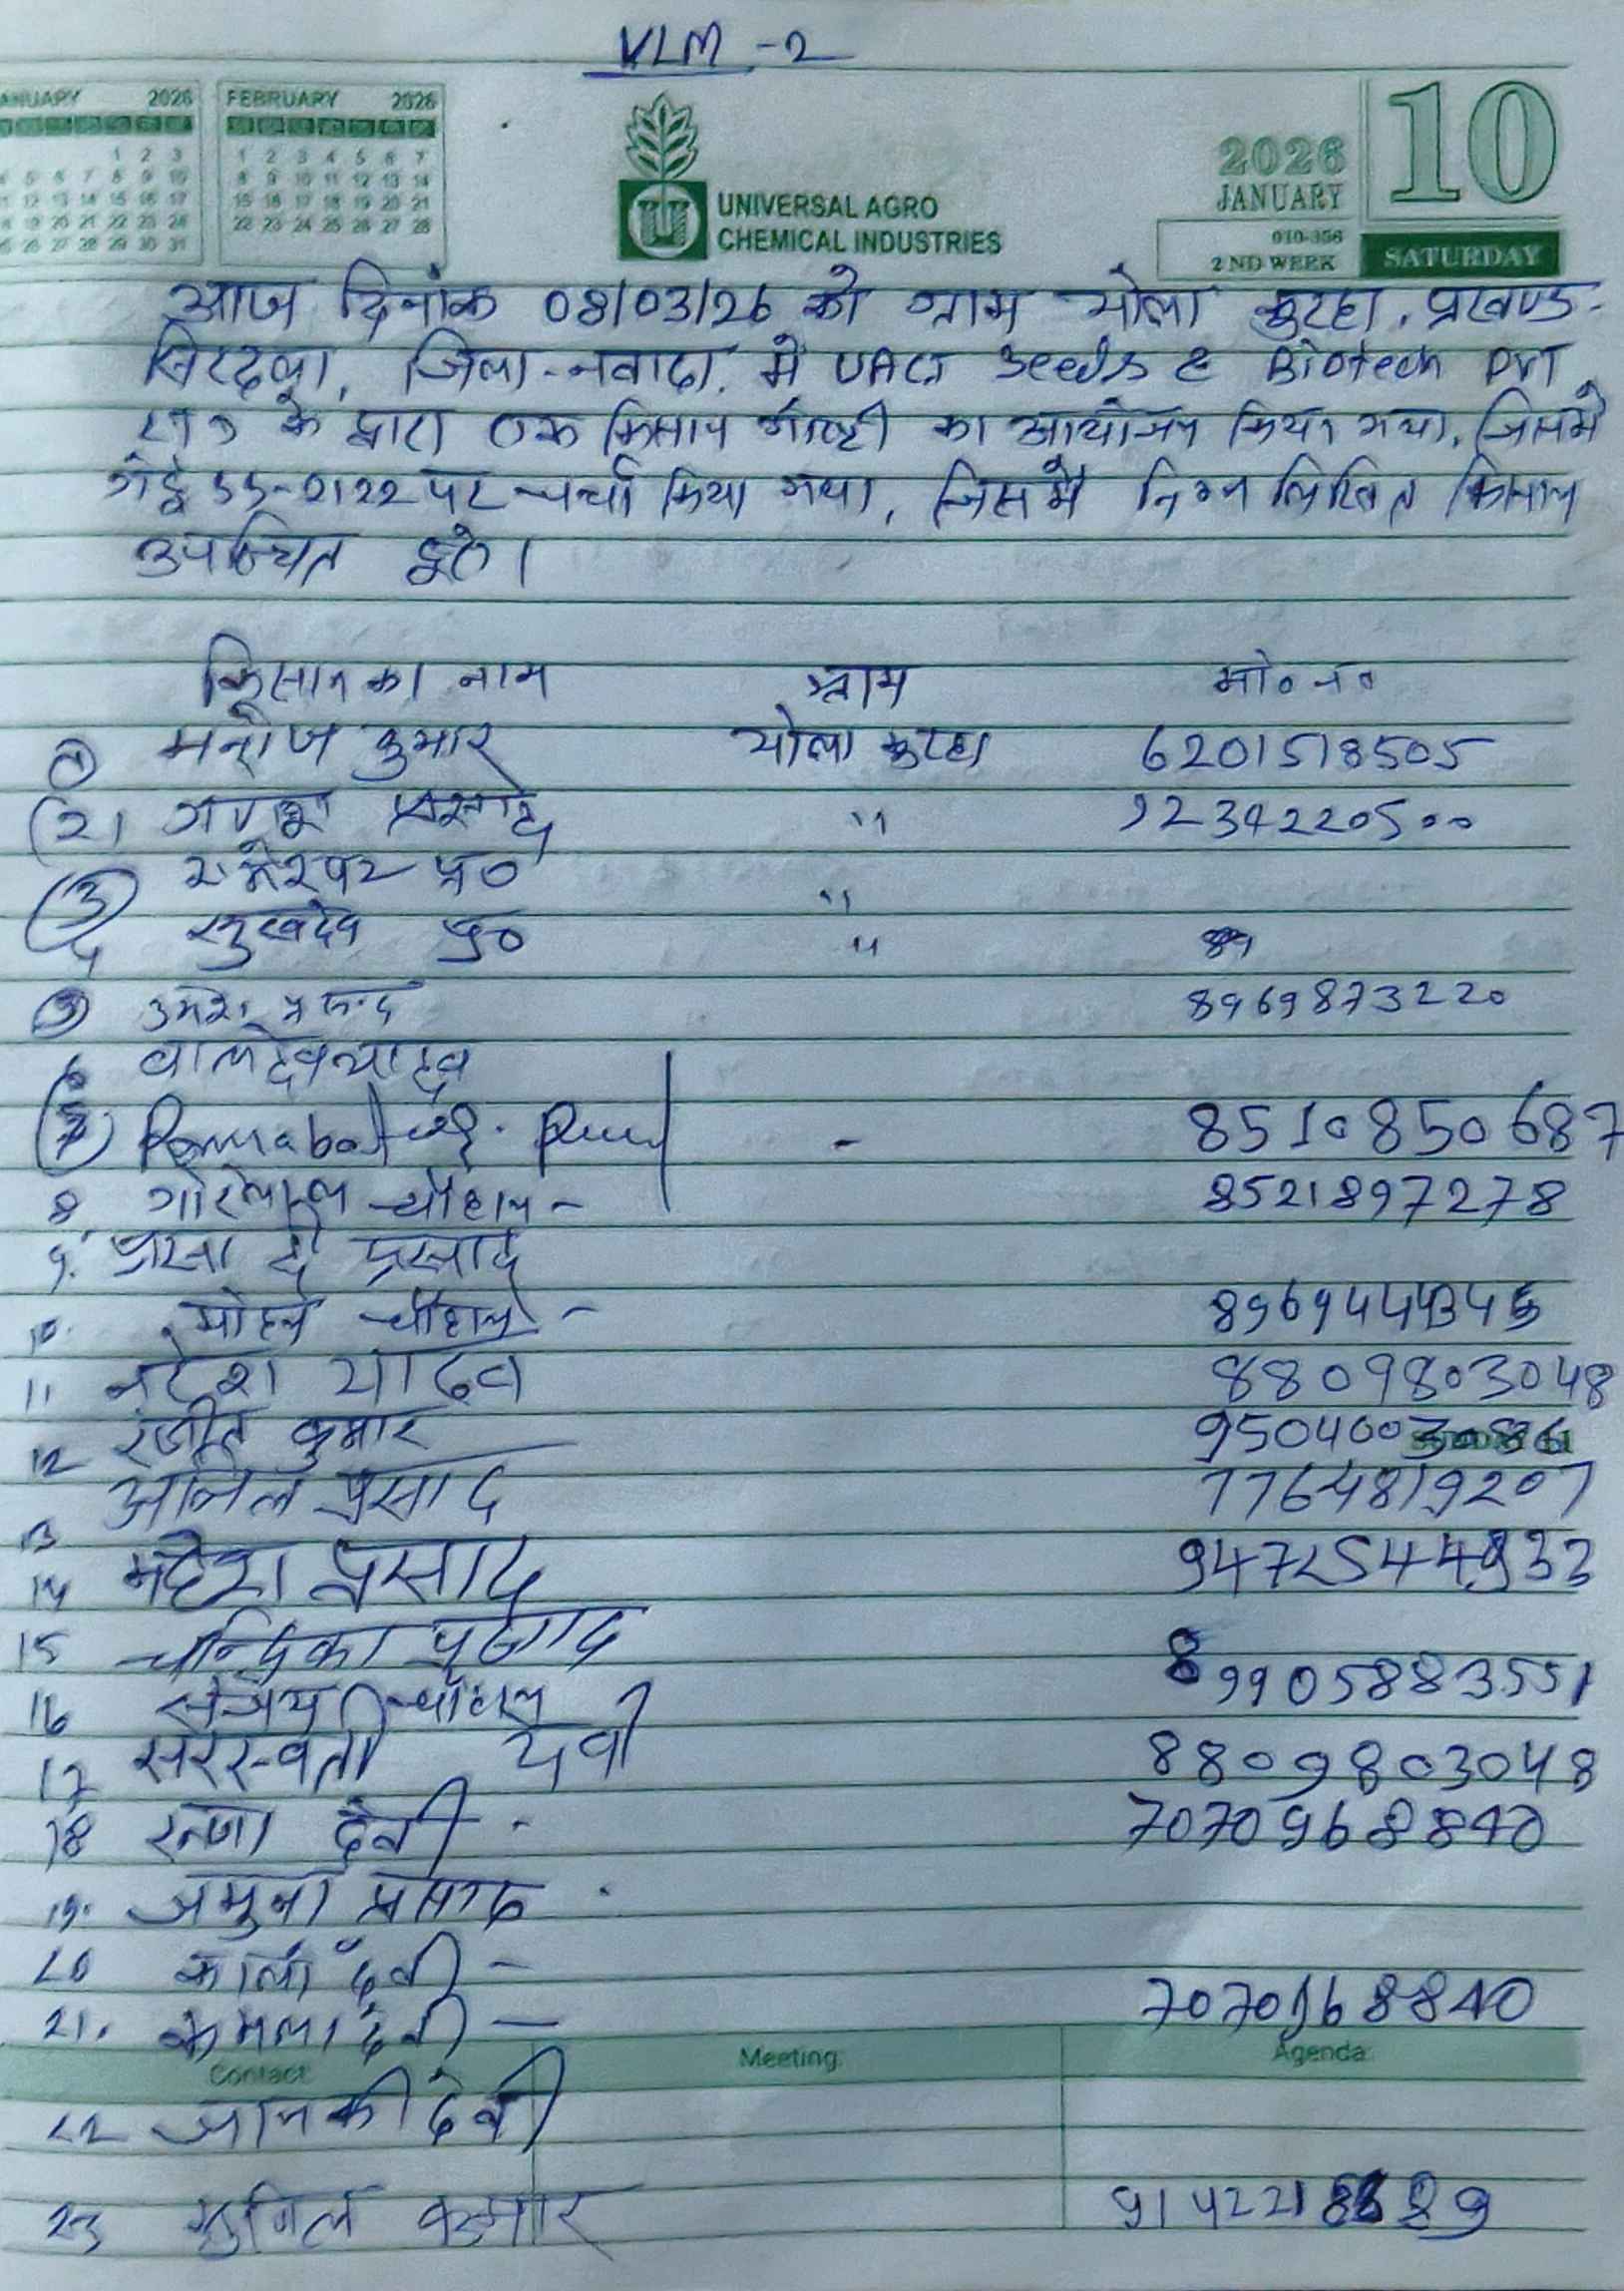 VLM -2
JANUARY 2026
1 2 3
4 5 6 7 8 9 10
11 12 13 14 15 16 17
18 19 20 21 22 23 24
25 26 27 28 29 30 31
FEBRUARY 2026
1 2 3 4 5 6 7
8 9 10 11 12 13 14
15 16 17 18 19 20 21
22 23 24 25 26 27 28
UNIVERSAL AGRO
CHEMICAL INDUSTRIES
2026
JANUARY
10
010-356
2 ND WEEK
SATURDAY
आज दिनांक 08/03/26 को ग्राम योला कुटहा, प्रखण्ड-
सिरदला, जिला-नवादा, में UACI Seeds & Biotech PVT
के द्वारा एक किसान गोष्टी का आयोजन किया गया, जिसमें
गेहूं SS-2122 पर चर्चा किया गया, जिसमें निम्नलिखित किसान
उपस्थित हुए।
किसान का नाम ग्राम मो० न०
① मनोज कुमार योला कुटहा 6201518505
(2) गणेश प्रसाद " 92342205००
③ रामेश्वर प्र० "
4 सुखदेव प्र० "
⑤ उमेश प्रसाद 8969873220
6 बालदेव यादव
7 - 8510850687
8 गोरेलाल चौहान - 8521897278
9. प्रसादी प्रसाद
10. मोहन चौहान - 896944434
11 नरेश यादव 8809803048
12 रंजीत कुमार 9504003086
13 अनिल प्रसाद 7764819207
14 महेश प्रसाद 9472544933
15 चन्द्रिका प्रसाद 8
16 संजय चौहान 9905883551
17 सरस्वती देवी 8809803048
18 रन्जा देवी - 7070968840
19. जमुना प्रसाद .
20 कालो देवी -
21. कमला देवी — 7070968840
Contact Meeting Agenda
22 जानकी देवी
23 सुनिल कुमार